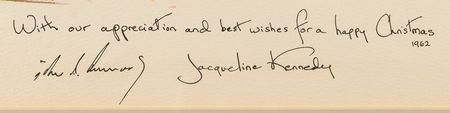 With our appreciation and best wishes for a happy Christmas
1962
Jacqueline Kennedy